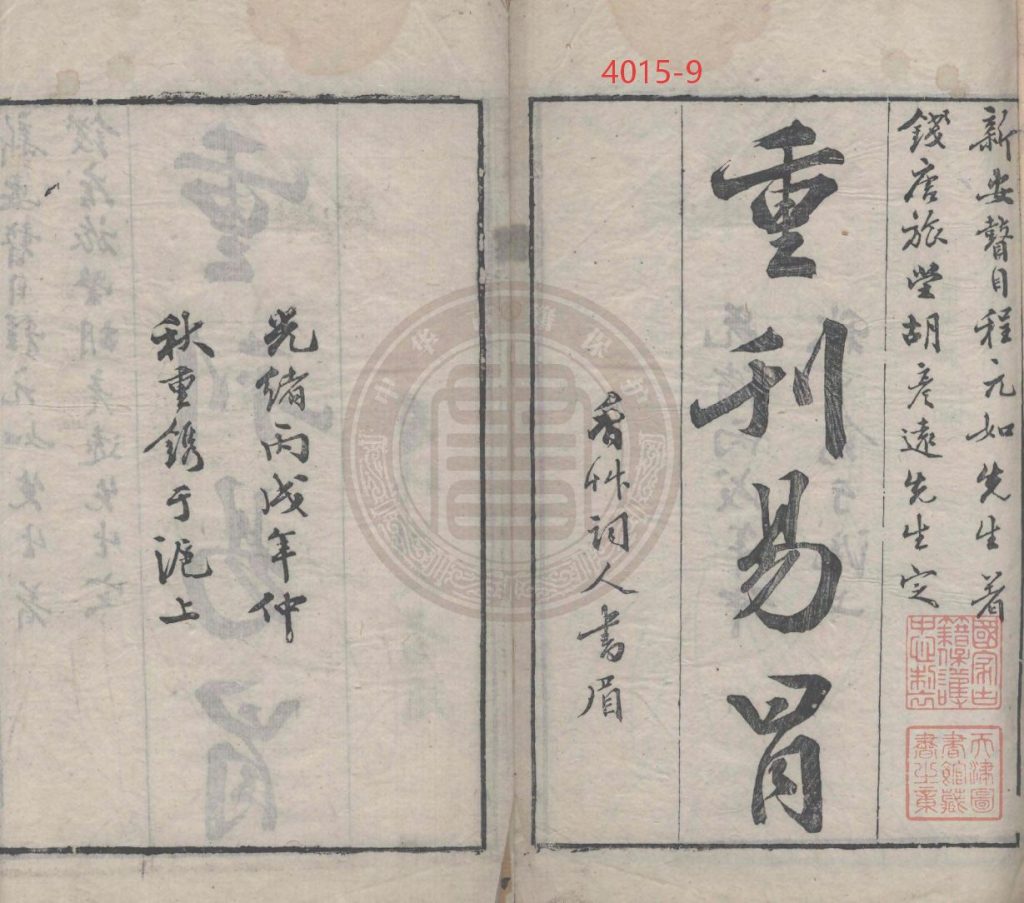 4015-9
新安瞽目程元如先生著
錢唐旅堂胡彥遠先生定
重刊易冒
香艸詞人書眉
國家古
籍保護
天津圖
書館藏
書之章
光緒丙戌年仲
秋重鐫于滬上